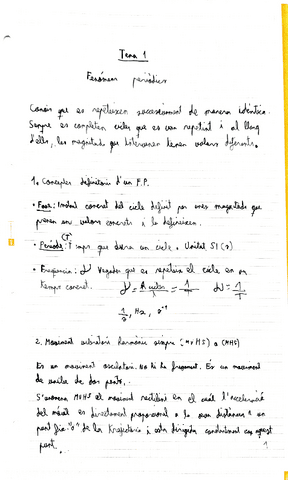 Tema 1
Fenòmens periòdics
Canvis que es repeteixen successivament de manera idèntica.
Sempre es completen cicles que es van repetint i al llarg
d'ells, les magnituds que intervenen tenen valors diferents.
1. Conceptes definitoris d'un F.P.
• Fase: Instant concret del cicle definit per unes magnituds que
prenen uns valors concrets i la defineixen.
• Període: (T) Temps que dura un cicle. Unitat SI (s)
• Freqüència: Vegades que es repeteix el cicle en un
temps concret.
1/s, Hz, s⁻¹
2. Moviment vibratori harmònic simple (MVHS) o (MHS)
És un moviment oscil·latori. No hi ha fregament. És un moviment
de entre dos punts.
S'anomena MVHS al moviment rectilini en el qual l'acceleració
del mòbil es directament proporcional a la seva distància a un
punt fix "O" de la trajectòria i està dirigida constantment cap aquest
punt.
1